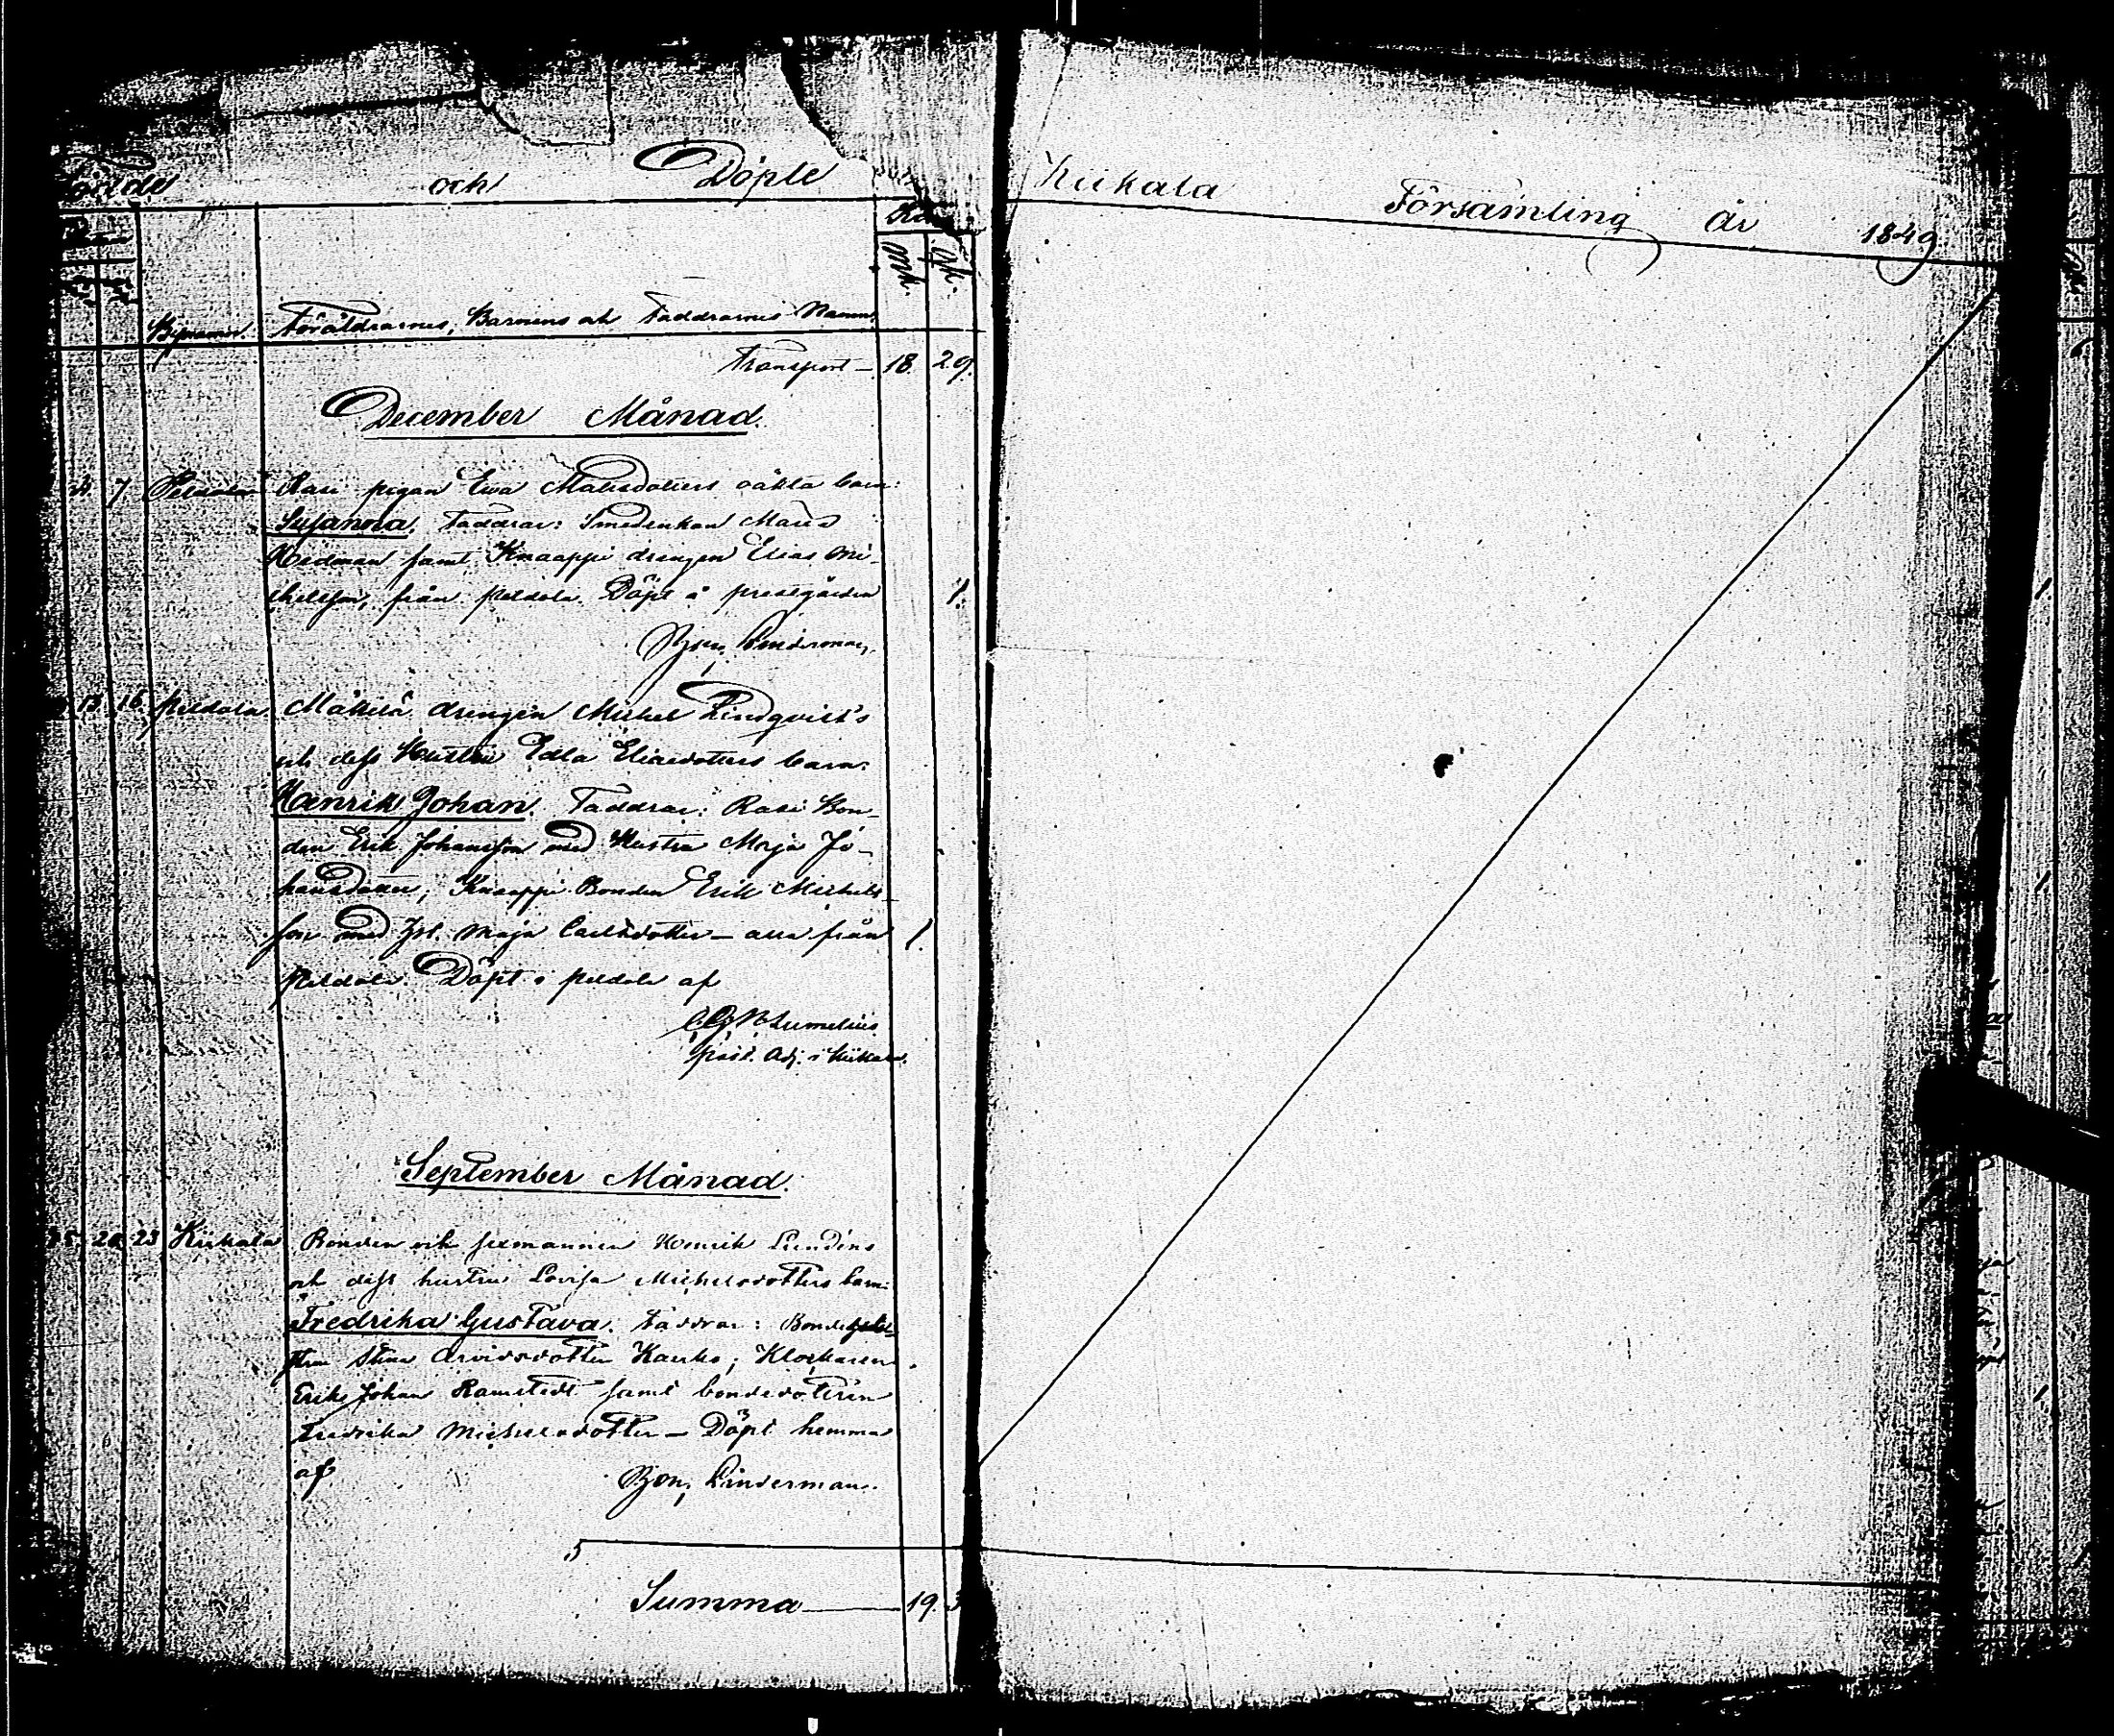 och Döpte
Kiikala Församling år 1849
Kön
Mk. Qk.
Bynamn. Föräldrarnes, Barnens och Faddrarnes Namn.
Transport — 18. 29.
December Månad.
7 Peldola Rasi pigan Ewa Matsdotters oäkta barn:
Susanna. Faddrar: Smedenkan Maria
Hedman samt Knaappi drengen Elias Mi-
chelsson, från Peldola. Döpt å prestgården 1.
Bjon, Linderman.
13. 16. Peldola Mäkilä drengen Michel Lindqvist's
och dess Hustru Edla Eliaedotters barn:
Henrik Johan. Faddrar: Rasi Bon-
den Erik Johansson med Hustru Maja Jo-
hansdotter; Knaappi Bonden Erik Michels-
son med Maja Carlsdotter — alla från 1.
Peldola. Döpt i Peldola af
Lumelius
past. Adj. i Kiikala.
September Månad.
20. 23. Kiikala Bonden och sexmannen Henrik Lundéns
och dess hustru Lovisa Michelsdotters barn:
Fredrika Gustava. Faddrar:
Stina Arvidsdotter Kaurko; Klockaren
Erik Johan Ramstedt samt bondedottren
Fredrika Michelsdotter — Döpt hemma
af Bjon, Linderman.
Summa — 19. 3